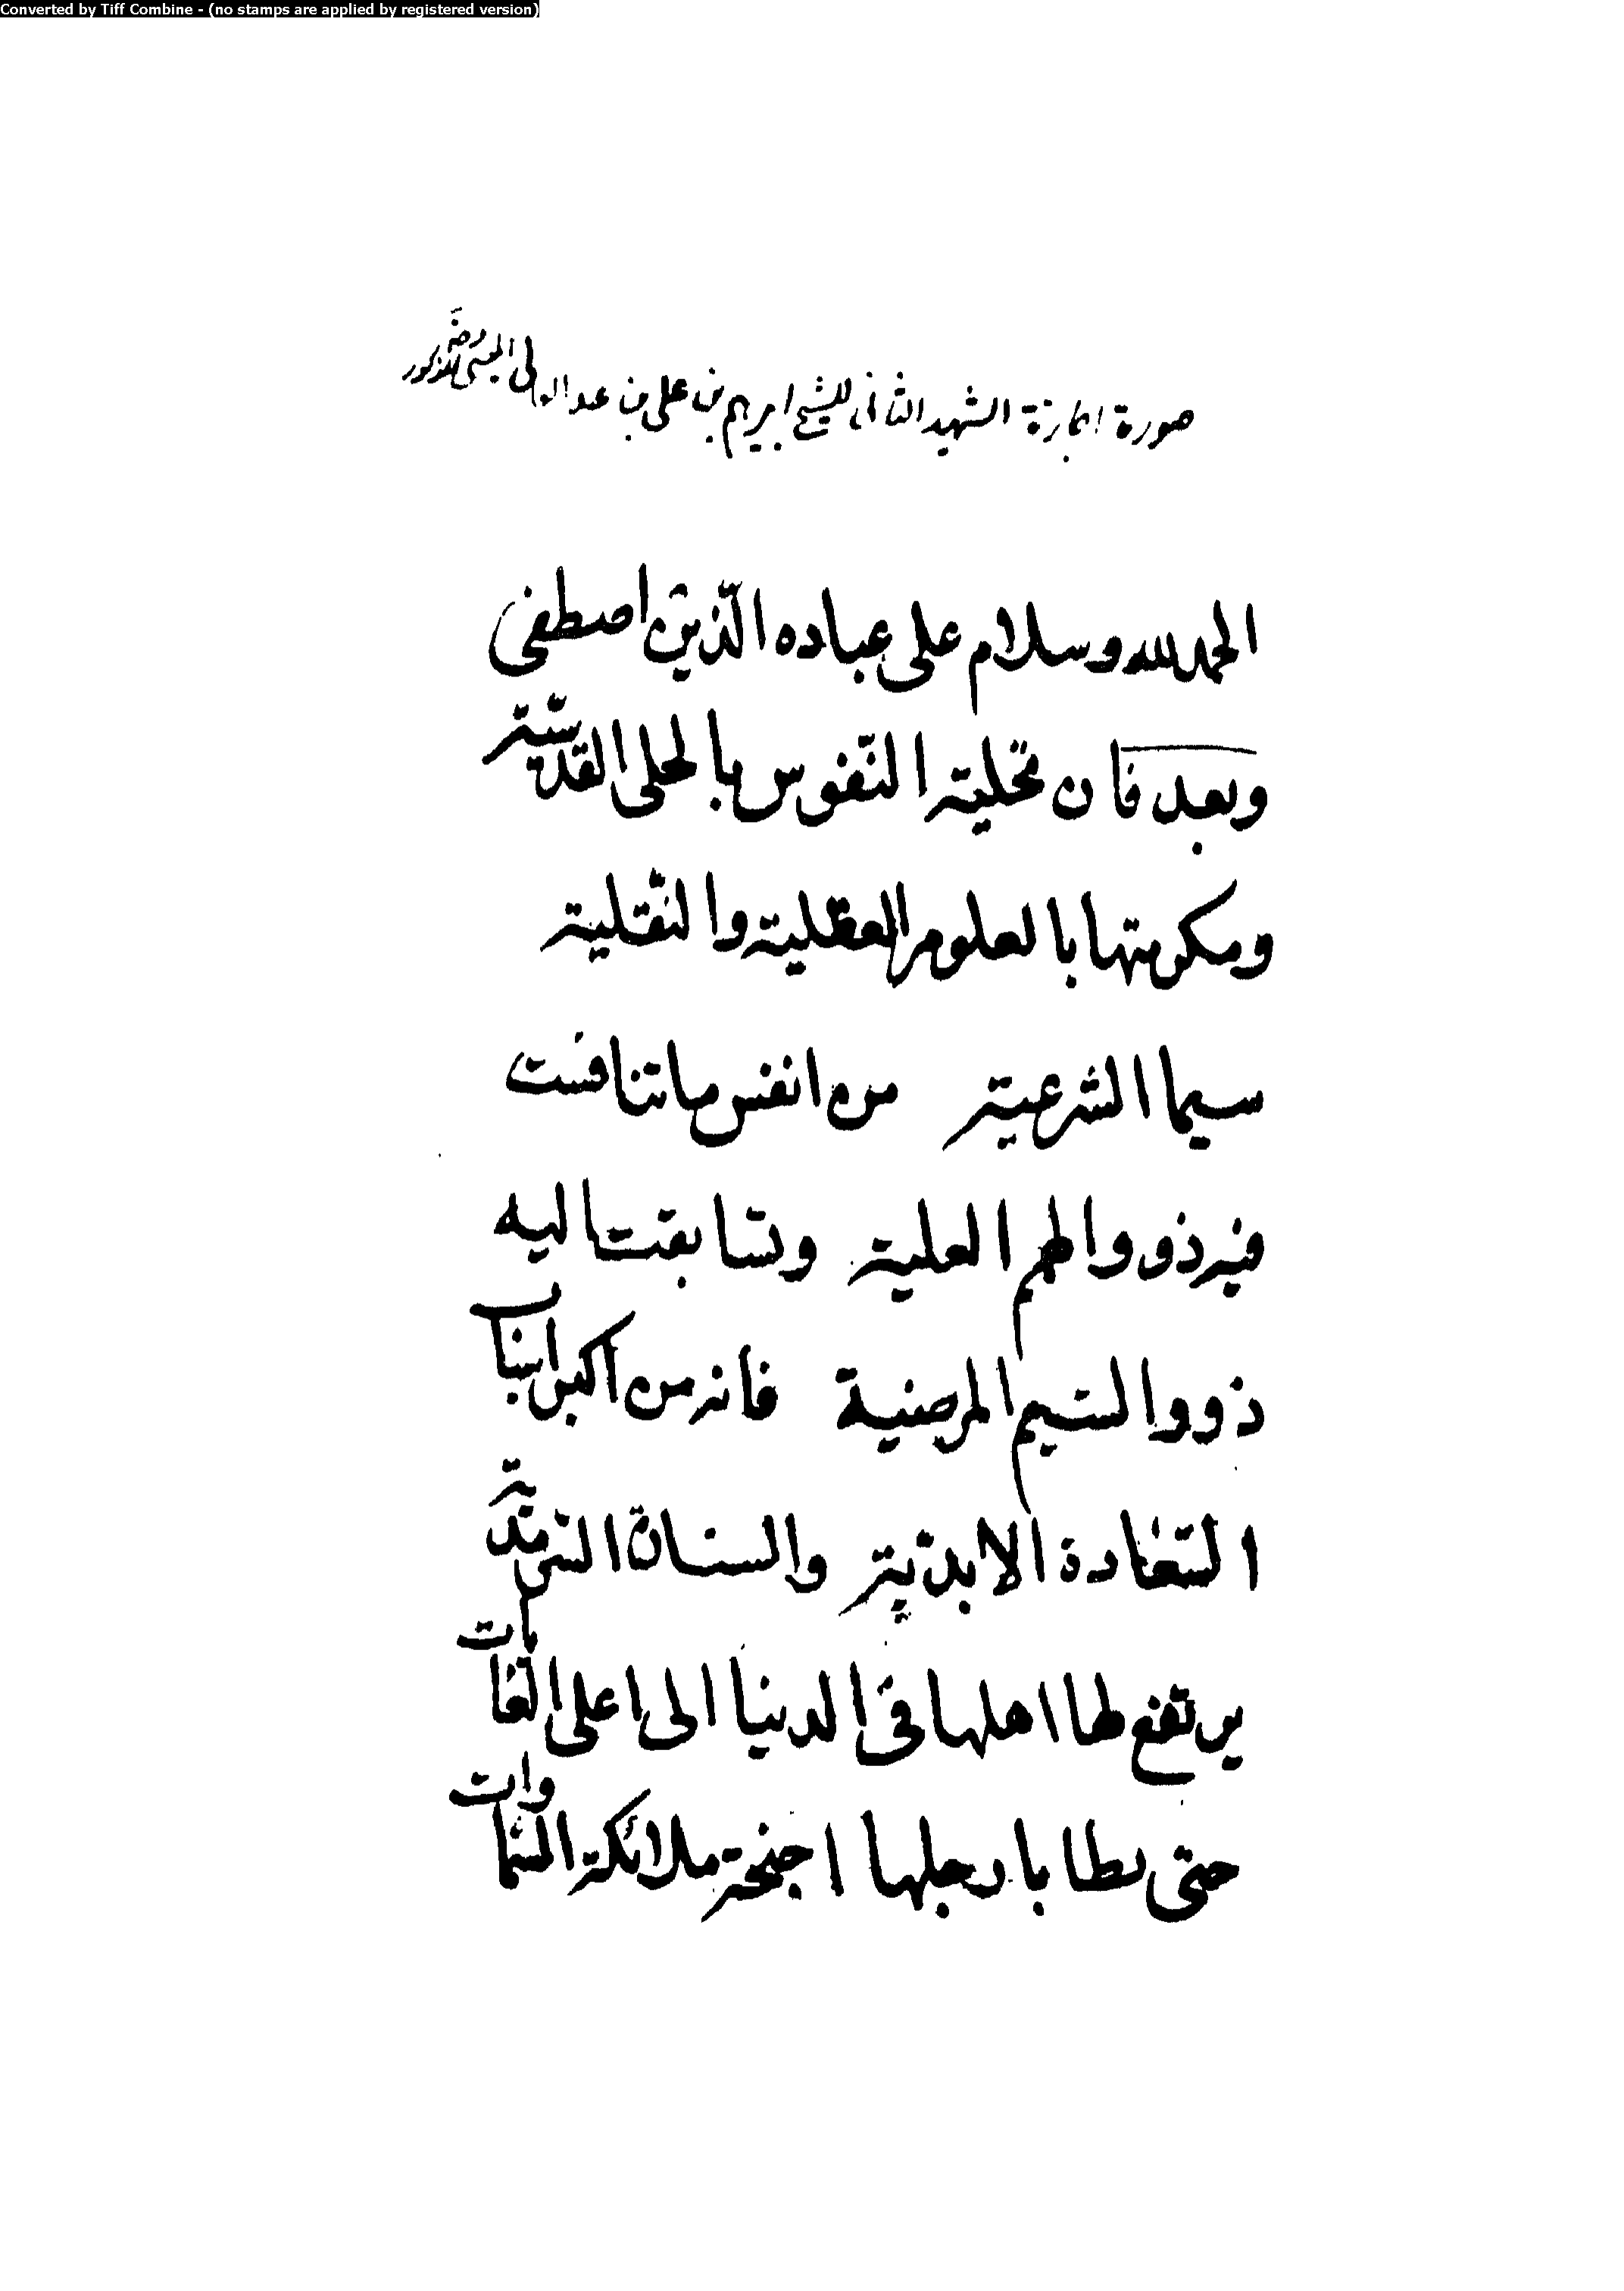 Converted by Tiff Combine - (no stamps are applied by registered version)
صورة اجازة الشهيد الثانى للشيخ ابرهيم بن على بن عبد العالى الميسى المذكور
الحمد لله وسلام على عباده الّذين اصطفى
وبعد فان تحلية النّفوس بالحلى القدسيّة
وتكرمتها بالعلوم العقلية والنّقلية
سيما الشرعية من انفس ما تنافست
فيه ذووا الهمم العلية وتسابقت اليه
ذووا الشيم المرضية فانه من اكبر اسباب
السّعادة الابديّة والسيادة السّرمديّة
يرتفع لها اهلها فى الدنيا الى اعلى الغايات
حتى تطا بارجلها اجنحة ملائكة السّماوات